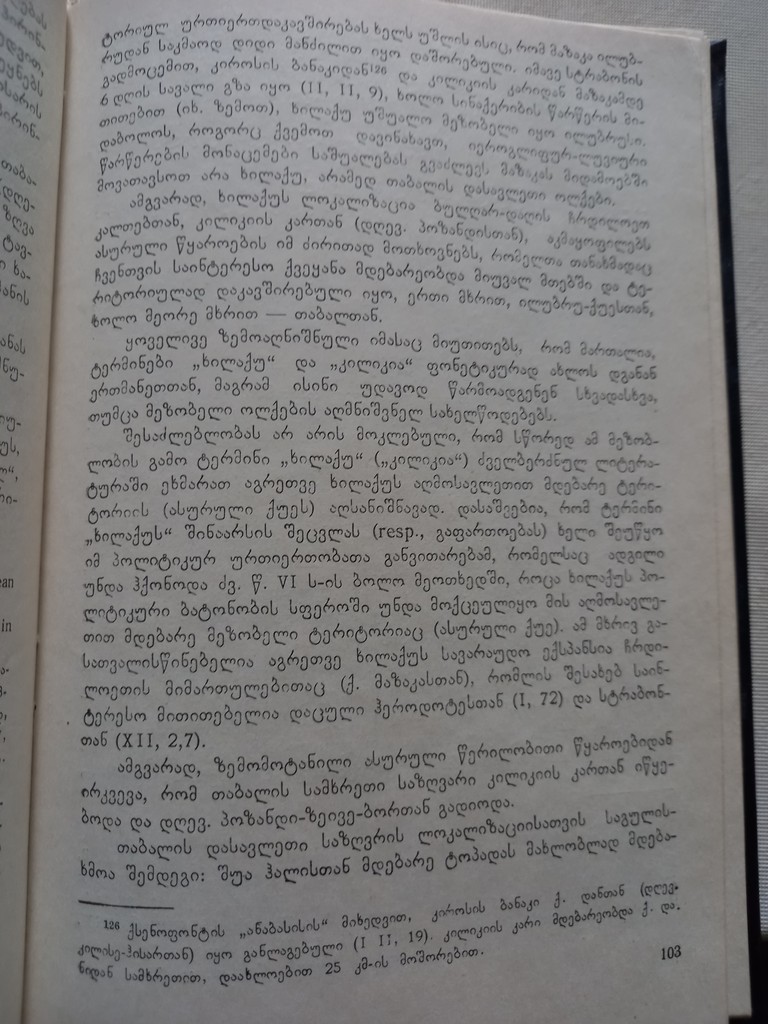 ტორიულ ურთიერთდაკავშირებას ხელს უშლის ისიც, რომ მაზაკა ილუბ-
რუდან საკმაოდ დიდი მანძილით იყო დაშორებული. იმავე სტრაბონის
გადმოცემით, კიროსის ბანაკიდან¹²⁶ და კილიკიის კარიდან მაზაკამდე
6 დღის სავალი გზა იყო (II, II, 9), ხოლო სინაქერიბის წარწერის მი-
თითებით (იხ. ზემოთ), ხილაქუ უშუალო მეზობელი იყო ილუბრუსი.
დაბოლოს, როგორც ქვემოთ დავინახავთ, იეროგლიფურ-ლუვიური
წარწერების მონაცემები საშუალებას გვაძლევს მაზაკას მიდამოებში
მოვათავსოთ არა ხილაქუ, არამედ თაბალის დასავლეთი ოლქები.
ამგვარად, ხილაქუს ლოკალიზაცია ბულღარ-დაღის ჩრდილოეთ
კალთებთან, კილიკიის კართან (დღევ. პოზანდისთან), აკმაყოფილებს
ასურული წყაროების იმ ძირითად მოთხოვნებს, რომელთა თანახმადაც
ჩვენთვის საინტერესო ქვეყანა მდებარეობდა მიუვალ მთებში და ტე-
რიტორიულად დაკავშირებული იყო, ერთი მხრით, ილუბრუ-ქუესთან,
ხოლო მეორე მხრით — თაბალთან.
ყოველივე ზემოაღნიშნული იმასაც მიუთითებს, რომ მართალია,
ტერმინები „ხილაქუ“ და „კილიკია“ ფონეტიკურად ახლოს დგანან
ერთმანეთთან, მაგრამ ისინი უდავოდ წარმოადგენენ სხვადასხვა,
თუმცა მეზობელი ოლქების აღმნიშვნელ სახელწოდებებს.
შესაძლებლობას არ არის მოკლებული, რომ სწორედ ამ მეზობ-
ლობის გამო ტერმინი „ხილაქუ“ („კილიკია“) ძველბერძნულ ლიტერა-
ტურაში ეხმარათ აგრეთვე ხილაქუს აღმოსავლეთით მდებარე ტერი-
ტორიის (ასურული ქუეს) აღსანიშნავად. დასაშვებია, რომ ტერმინი
„ხილაქუს“ შინაარსის შეცვლას (resp., გაფართოებას) ხელი შეუწყო
იმ პოლიტიკურ ურთიერთობათა განვითარებამ, რომელსაც ადგილი
უნდა ჰქონოდა ძვ. წ. VI ს-ის ბოლო მეოთხედში, როცა ხილაქუს პო-
ლიტიკური ბატონობის სფეროში უნდა მოქცეულიყო მის აღმოსავლე-
თით მდებარე მეზობელი ტერიტორიაც (ასურული ქუე). ამ მხრივ გა-
სათვალისწინებელია აგრეთვე ხილაქუს სავარაუდო ექსპანსია ჩრდი-
ლოეთის მიმართულებითაც (ქ. მაზაკასთან), რომლის შესახებ საინ-
ტერესო მითითებელია დაცული ჰეროდოტესთან (I, 72) და სტრაბონ-
თან (XII, 2,7).
ამგვარად, ზემომოტანილი ასურული წერილობითი წყაროებიდან
ირკვევა, რომ თაბალის სამხრეთი საზღვარი კილიკიის კართან იწყე-
ბოდა და დღევ. პოზანდი-ზეივე-ბორთან გადიოდა.
თაბალის დასავლეთი საზღვრის ლოკალიზაციისათვის საგულის-
ხმოა შემდეგი: შუა ჰალისთან მდებარე ტოპადას მახლობლად მდება-
¹²⁶ ქსენოფონტის „ანაბასისის“ მიხედვით, კიროსის ბანაკი ქ. დანთან (დღევ.
კილისე-ჰისართან) იყო განლაგებული (I II, 19). კილიკიის კარი მდებარეობდა ქ. და-
ნიდან სამხრეთით, დაახლოებით 25 კმ-ის მოშორებით.
103